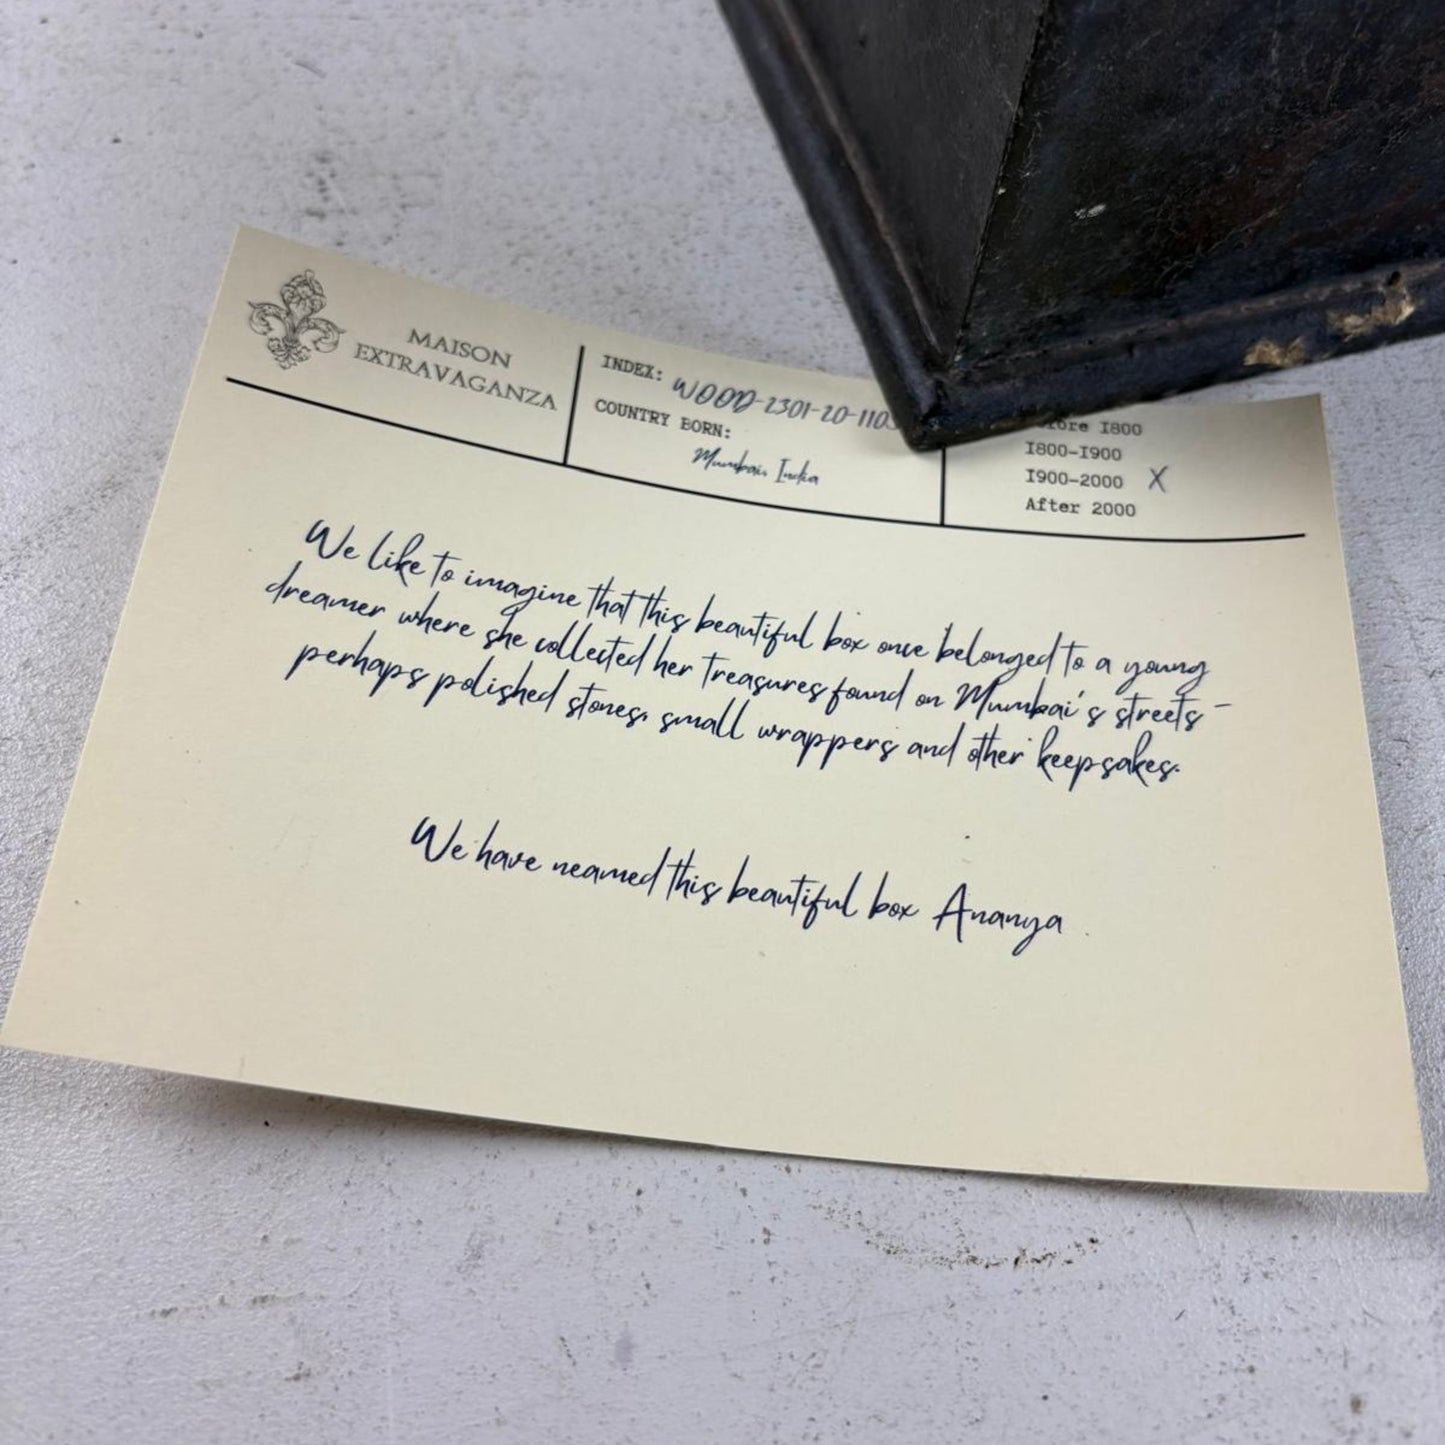 MAISON
EXTRAVAGANZA
INDEX: WOOD-2301-20-1103
COUNTRY BORN:
Mumbai, India
Before 1800
1800-1900
1900-2000 X
After 2000
We like to imagine that this beautiful box once belonged to a young
dreamer where she collected her treasures found on Mumbai's streets -
perhaps polished stones, small wrappers and other keepsakes.
We have neamed this beautiful box Ananya